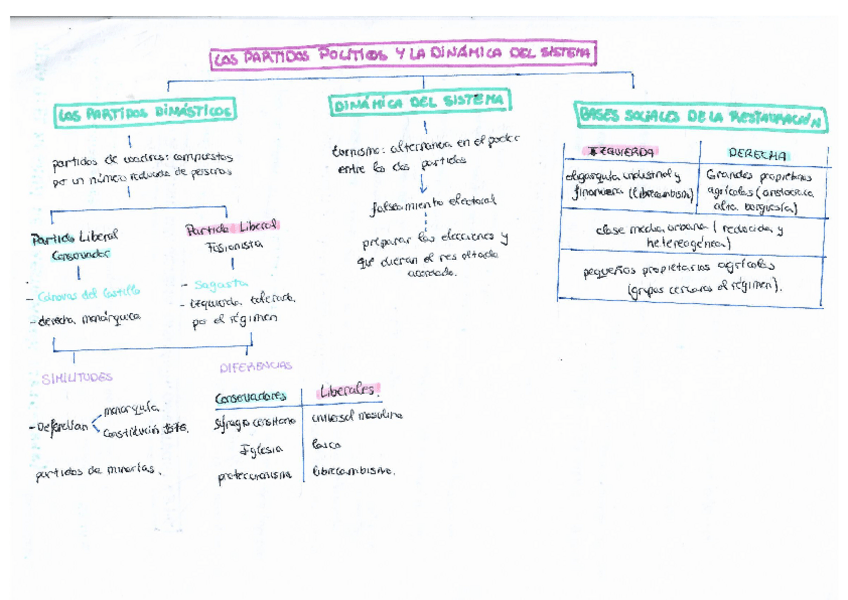 LOS PARTIDOS POLITICOS Y LA DINÁMICA DEL SISTEMA
LOS PARTIDOS DINÁSTICOS
partidos de cuadros: compuestos
por un número reducido de personas
Partido Liberal
Conservador
- Cánovas del Castillo
- derecha monárquica
Partido Liberal
Fusionista
- Sagasta
- Izquierda tolerada
por el régimen
SIMILITUDES
- Defendían
monarquía.
Constitución 1876.
partidos de minorías.
DIFERENCIAS
Conservadores
Liberales.
sufragio censitario
universal masculino
Iglesia
laico
proteccionismo
librecambismo.
DINÁMICA DEL SISTEMA
turnismo: alternancia en el poder
entre los dos partidos
falseamiento electoral
preparar las elecciones y
que dieran el resultado
acordado.
BASES SOCIALES DE LA RESTAURACIÓN
IZQUIERDA
DERECHA
oligarquía industrial y
financiera (librecambista)
Grandes propietarios
agrícolas (aristocracia
alta burguesía)
clase media urbana (reducida y
heterogénea)
pequeños propietarios agrícolas
(grupos cercanos al régimen).